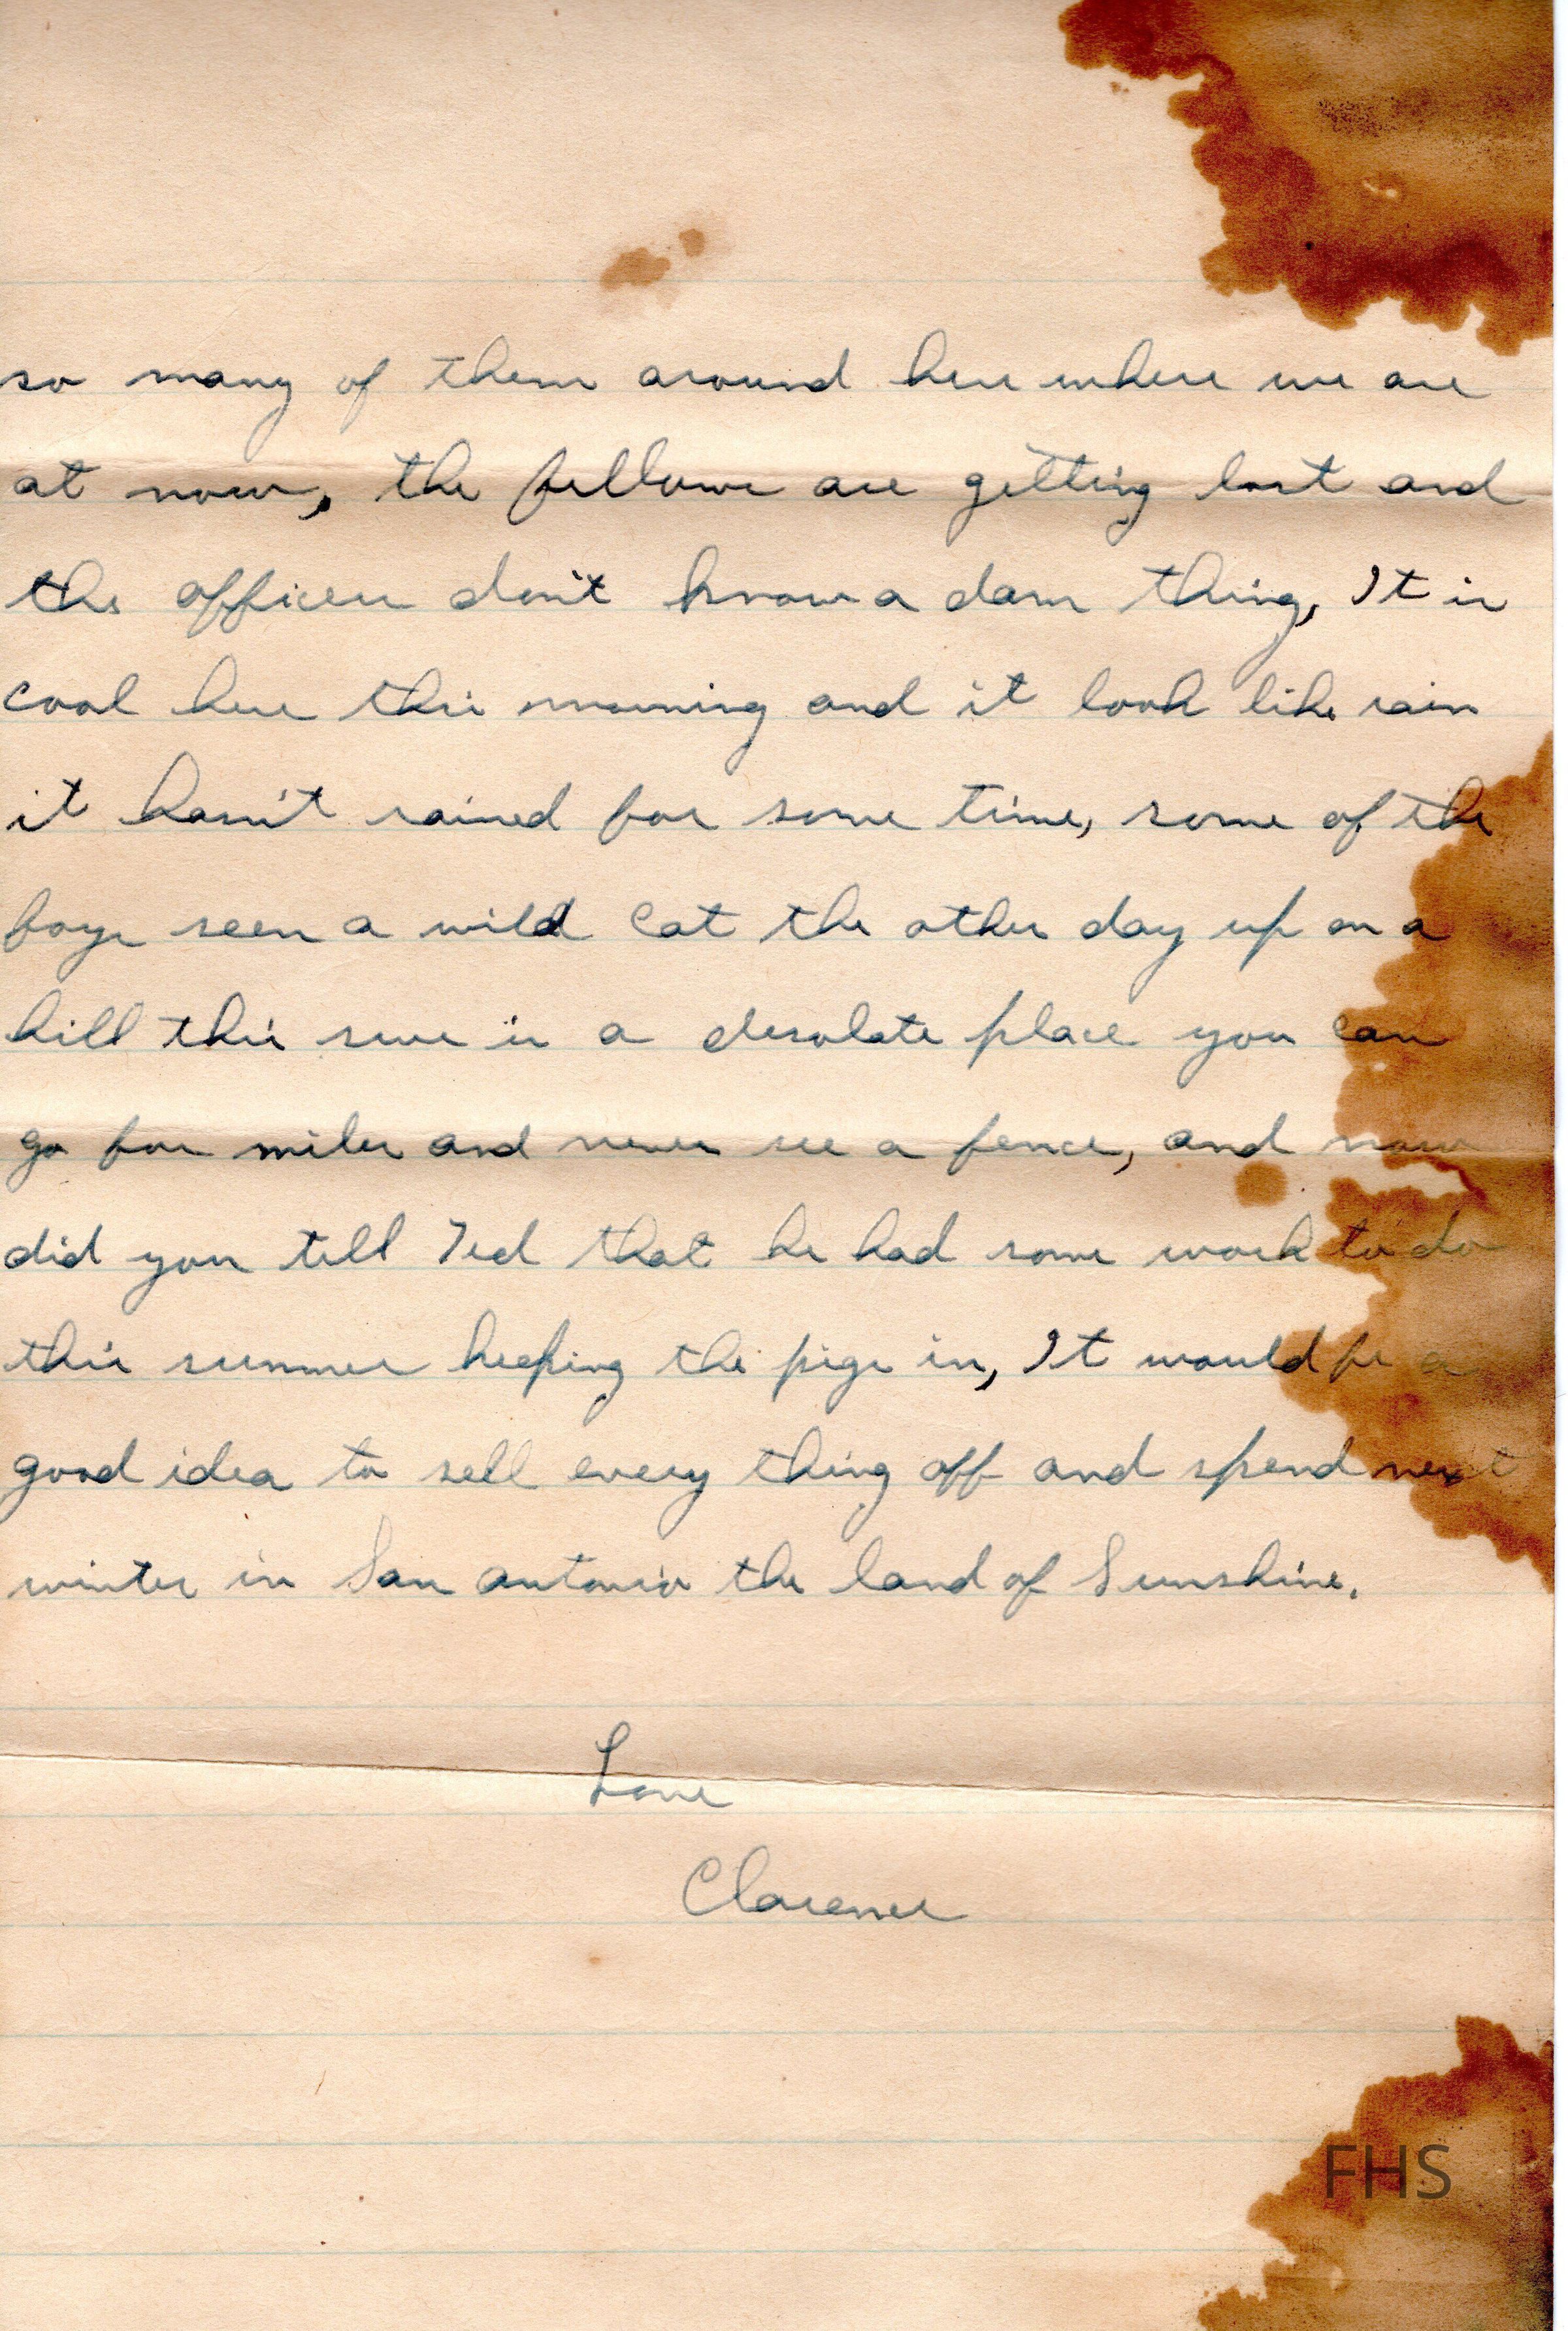 so many of them around here where we are
at now, the fellows are getting lost and
the officers don't know a dam thing, It is
cool here this morning and it look like rain
it hasn't rained for some time, some of the
boys seen a wild cat the other day up on a
hill this sure is a desolate place you can
go for miles and never see a fence, and now
did you tell Ted that he had some work to do
this summer keeping the pigs in, It would be a
good idea to sell every thing off and spend next
winter in San antonio the land of Sunshine.
Love
Clarence
FHS